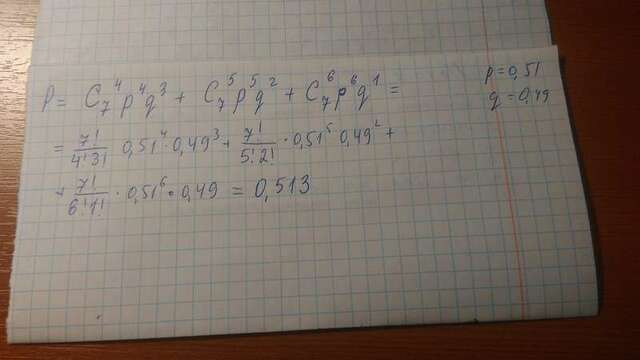 P = C₇⁴p⁴q³ + C₇⁵p⁵q² + C₇⁶p⁶q¹ =
p = 0,51
q = 0,49
= 7!/4!3! 0,51⁴ · 0,49³ + 7!/5!2! · 0,51⁵ 0,49² +
+ 7!/6!1! · 0,51⁶ · 0,49 = 0,513